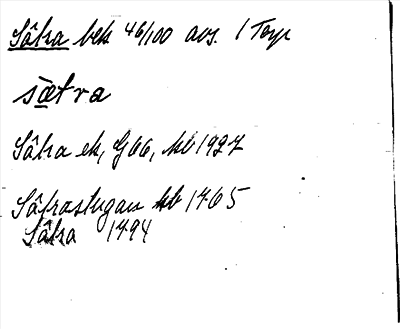 Sätra bek 46/100 avs. 1 Torp
sætra
Sätra ek, G66, kb 1927
Sätrastugan kb 1765
Sätra 1794